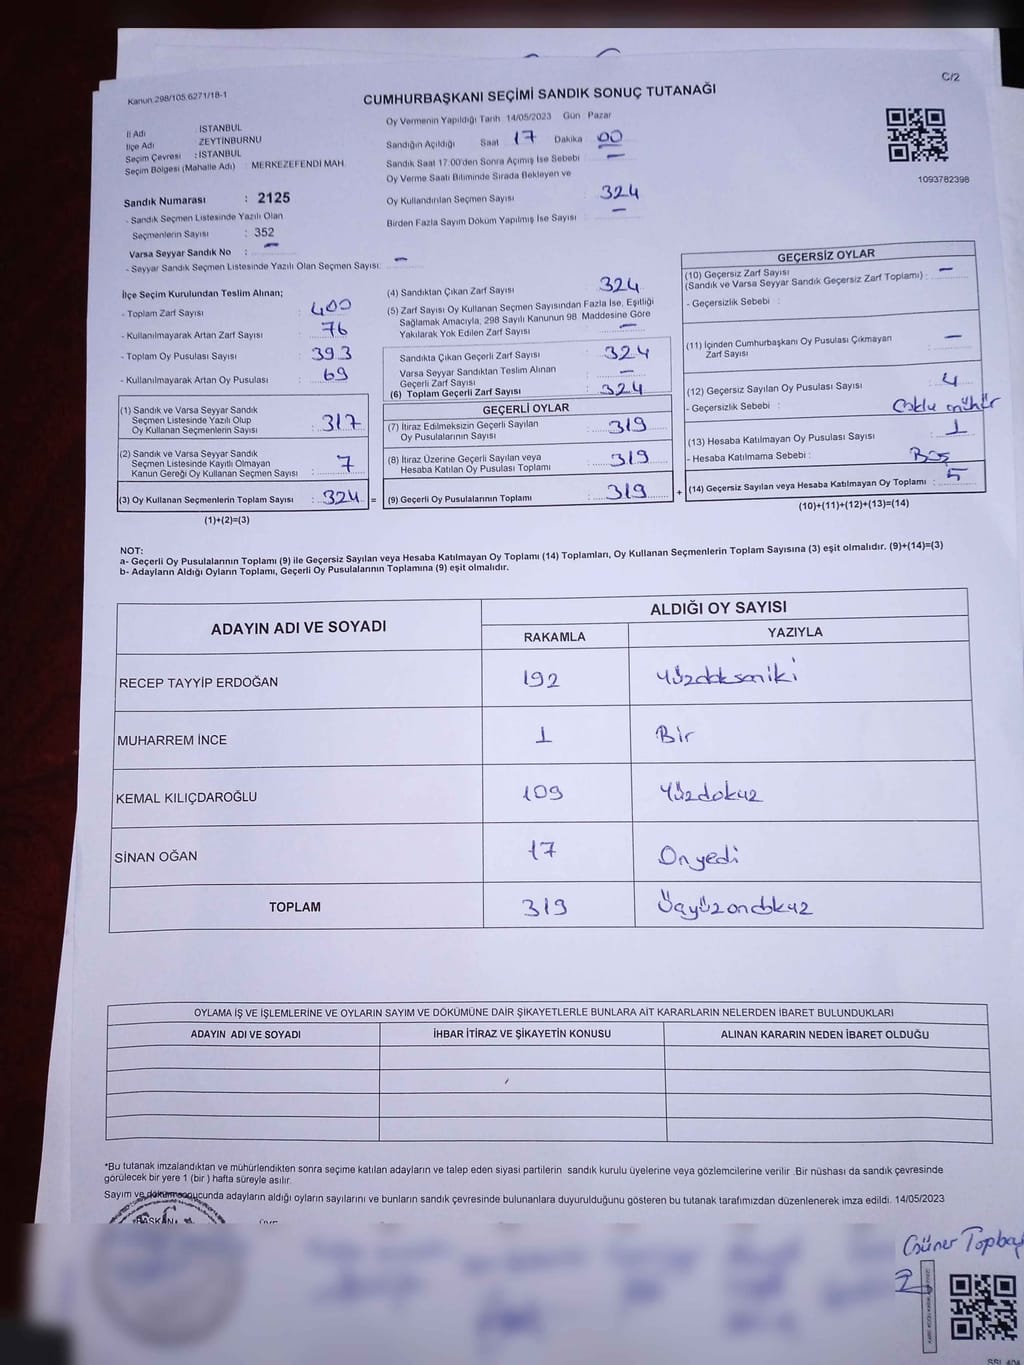 C/2
Kanun.298/105.6271/18-1
CUMHURBAŞKANI SEÇİMİ SANDIK SONUÇ TUTANAĞI
1093782398
İl Adı İSTANBUL
İlçe Adı ZEYTİNBURNU
Seçim Çevresi : İSTANBUL
Seçim Bölgesi (Mahalle Adı) : MERKEZEFENDİ MAH.
Sandık Numarası : 2125
- Sandık Seçmen Listesinde Yazılı Olan
Seçmenlerin Sayısı : 352
Varsa Seyyar Sandık No : –
- Seyyar Sandık Seçmen Listesinde Yazılı Olan Seçmen Sayısı: –
Oy Vermenin Yapıldığı Tarih 14/05/2023 Gün : Pazar
Sandığın Açıldığı Saat 17 Dakika 00
Sandık Saat 17:00'den Sonra Açımış İse Sebebi –
Oy Verme Saati Bitiminde Sırada Bekleyen ve
Oy Kullandırılan Seçmen Sayısı 324
Birden Fazla Sayım Döküm Yapılmış İse Sayısı –
İlçe Seçim Kurulundan Teslim Alınan;
- Toplam Zarf Sayısı : 400
- Kullanılmayarak Artan Zarf Sayısı : 76
- Toplam Oy Pusulası Sayısı : 393
- Kullanılmayarak Artan Oy Pusulası : 69
(1) Sandık ve Varsa Seyyar Sandık
Seçmen Listesinde Yazılı Olup
Oy Kullanan Seçmenlerin Sayısı : 317
(2) Sandık ve Varsa Seyyar Sandık
Seçmen Listesinde Kayıtlı Olmayan
Kanun Gereği Oy Kullanan Seçmen Sayısı : 7
(3) Oy Kullanan Seçmenlerin Toplam Sayısı : 324 =
(1)+(2)=(3)
(4) Sandıktan Çıkan Zarf Sayısı 324
(5) Zarf Sayısı Oy Kullanan Seçmen Sayısından Fazla İse, Eşitliği
Sağlamak Amacıyla, 298 Sayılı Kanunun 98. Maddesine Göre
Yakılarak Yok Edilen Zarf Sayısı –
Sandıkta Çıkan Geçerli Zarf Sayısı 324
Varsa Seyyar Sandıktan Teslim Alınan
Geçerli Zarf Sayısı –
(6) Toplam Geçerli Zarf Sayısı 324
GEÇERLİ OYLAR
(7) İtiraz Edilmeksizin Geçerli Sayılan
Oy Pusulalarının Sayısı : 319
(8) İtiraz Üzerine Geçerli Sayılan veya
Hesaba Katılan Oy Pusulası Toplamı : 319
(9) Geçerli Oy Pusulalarının Toplamı : 319 +
GEÇERSİZ OYLAR
(10) Geçersiz Zarf Sayısı
(Sandık ve Varsa Seyyar Sandık Geçersiz Zarf Toplamı) : –
- Geçersizlik Sebebi :
(11) İçinden Cumhurbaşkanı Oy Pusulası Çıkmayan
Zarf Sayısı : –
(12) Geçersiz Sayılan Oy Pusulası Sayısı : 4
- Geçersizlik Sebebi : Çoklu mühür
(13) Hesaba Katılmayan Oy Pusulası Sayısı : 1
- Hesaba Katılmama Sebebi : Boş
(14) Geçersiz Sayılan veya Hesaba Katılmayan Oy Toplamı : 5
(10)+(11)+(12)+(13)=(14)
NOT:
a- Geçerli Oy Pusulalarının Toplamı (9) ile Geçersiz Sayılan veya Hesaba Katılmayan Oy Toplamı (14) Toplamları, Oy Kullanan Seçmenlerin Toplam Sayısına (3) eşit olmalıdır. (9)+(14)=(3)
b- Adayların Aldığı Oyların Toplamı, Geçerli Oy Pusulalarının Toplamına (9) eşit olmalıdır.
ADAYIN ADI VE SOYADI
ALDIĞI OY SAYISI
RAKAMLA YAZIYLA
RECEP TAYYİP ERDOĞAN 192 Yüzdoksaniki
MUHARREM İNCE 1 Bir
KEMAL KILIÇDAROĞLU 109 Yüzdokuz
SİNAN OĞAN 17 Onyedi
TOPLAM 319 Üçyüzondokuz
OYLAMA İŞ VE İŞLEMLERİNE VE OYLARIN SAYIM VE DÖKÜMÜNE DAİR ŞİKAYETLERLE BUNLARA AİT KARARLARIN NELERDEN İBARET BULUNDUKLARI
ADAYIN ADI VE SOYADI İHBAR İTİRAZ VE ŞİKAYETİN KONUSU ALINAN KARARIN NEDEN İBARET OLDUĞU
*Bu tutanak imzalandıktan ve mühürlendikten sonra seçime katılan adayların ve talep eden siyasi partilerin sandık kurulu üyelerine veya gözlemcilerine verilir. Bir nüshası da sandık çevresinde
görülecek bir yere 1 (bir) hafta süreyle asılır.
Sayım ve dökümü sonucunda adayların aldığı oyların sayılarını ve bunların sandık çevresinde bulunanlara duyurulduğunu gösteren bu tutanak tarafımızdan düzenlenerek imza edildi. 14/05/2023
BAŞKAN
Güner Topbaş